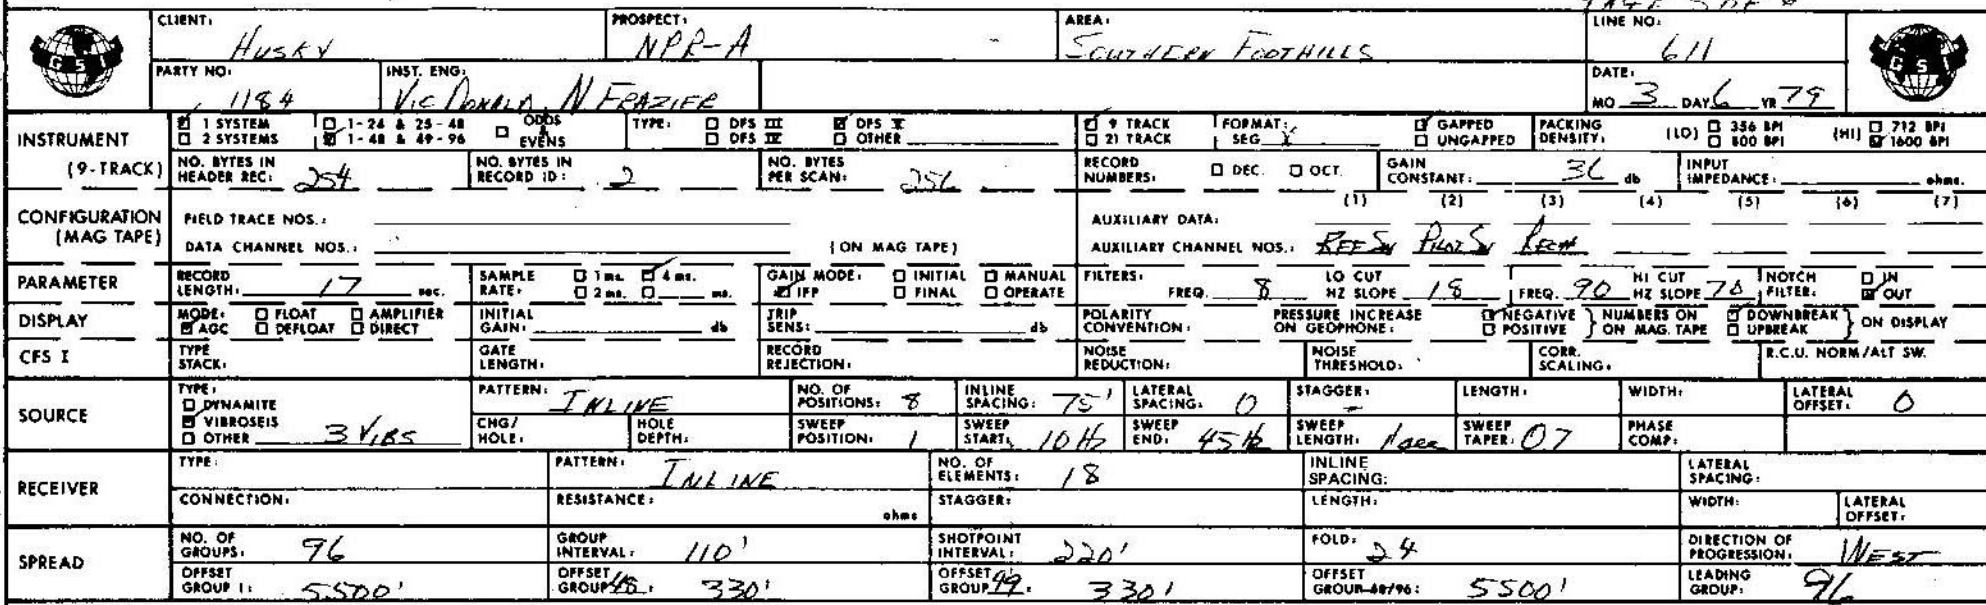 CLIENT: Husky PROSPECT: NPR-A AREA: SOUTHERN FOOTHILLS LINE NO: 611
GSI GSI
PARTY NO: 1184 INST. ENG: VIC DONALD, N FRAZIER DATE: MO 3 DAY 6 YR 79
INSTRUMENT (9-TRACK)
1 SYSTEM 1-24 & 25-48 ODDS & EVENS TYPE: DFS III DFS V 9 TRACK FORMAT: GAPPED PACKING DENSITY: (LO) 356 BPI (HI) 712 BPI
2 SYSTEMS 1-48 & 49-96 DFS IV OTHER 21 TRACK SEG Y UNGAPPED 800 BPI 1600 BPI
NO. BYTES IN HEADER REC: 254 NO. BYTES IN RECORD ID: 2 NO. BYTES PER SCAN: 256 RECORD NUMBERS: DEC. OCT. GAIN CONSTANT: 36 db INPUT IMPEDANCE: ohms.
CONFIGURATION (MAG TAPE)
(1) (2) (3) (4) (5) (6) (7)
FIELD TRACE NOS.: AUXILIARY DATA:
DATA CHANNEL NOS.: (ON MAG TAPE) AUXILIARY CHANNEL NOS.: REF SW PILOT SW
PARAMETER RECORD LENGTH: 17 sec. SAMPLE RATE: 1 ms. 4 ms. 2 ms. ms. GAIN MODE: INITIAL MANUAL IFP FINAL OPERATE FILTERS: FREQ. 8 LO CUT HZ SLOPE 18 FREQ. 90 HI CUT HZ SLOPE 70 NOTCH FILTER: IN OUT
DISPLAY MODE: FLOAT AMPLIFIER AGC DEFLOAT DIRECT INITIAL GAIN: db TRIP SENS: db POLARITY CONVENTION: PRESSURE INCREASE ON GEOPHONE: NEGATIVE POSITIVE NUMBERS ON ON MAG. TAPE DOWNBREAK UPBREAK ON DISPLAY
CFS I TYPE STACK: GATE LENGTH: RECORD REJECTION: NOISE REDUCTION: NOISE THRESHOLD: CORR. SCALING: R.C.U. NORM/ALT SW.
SOURCE
TYPE: DYNAMITE VIBROSEIS OTHER 3 VIBS PATTERN: INLINE NO. OF POSITIONS: 8 INLINE SPACING: 75' LATERAL SPACING: 0 STAGGER: - LENGTH: WIDTH: LATERAL OFFSET: 0
CHG/HOLE: HOLE DEPTH: SWEEP POSITION: 1 SWEEP START: 10 Hz SWEEP END: 45 Hz SWEEP LENGTH: SWEEP TAPER: 07 PHASE COMP:
RECEIVER
TYPE: PATTERN: INLINE NO. OF ELEMENTS: 18 INLINE SPACING: LATERAL SPACING:
CONNECTION: RESISTANCE: ohms STAGGER: LENGTH: WIDTH: LATERAL OFFSET:
SPREAD
NO. OF GROUPS: 96 GROUP INTERVAL: 110' SHOTPOINT INTERVAL: 220' FOLD: 24 DIRECTION OF PROGRESSION: WEST
OFFSET GROUP 1: 5500' OFFSET GROUP 48: 330' OFFSET GROUP 49: 330' OFFSET GROUP 48/96: 5500' LEADING GROUP: 96